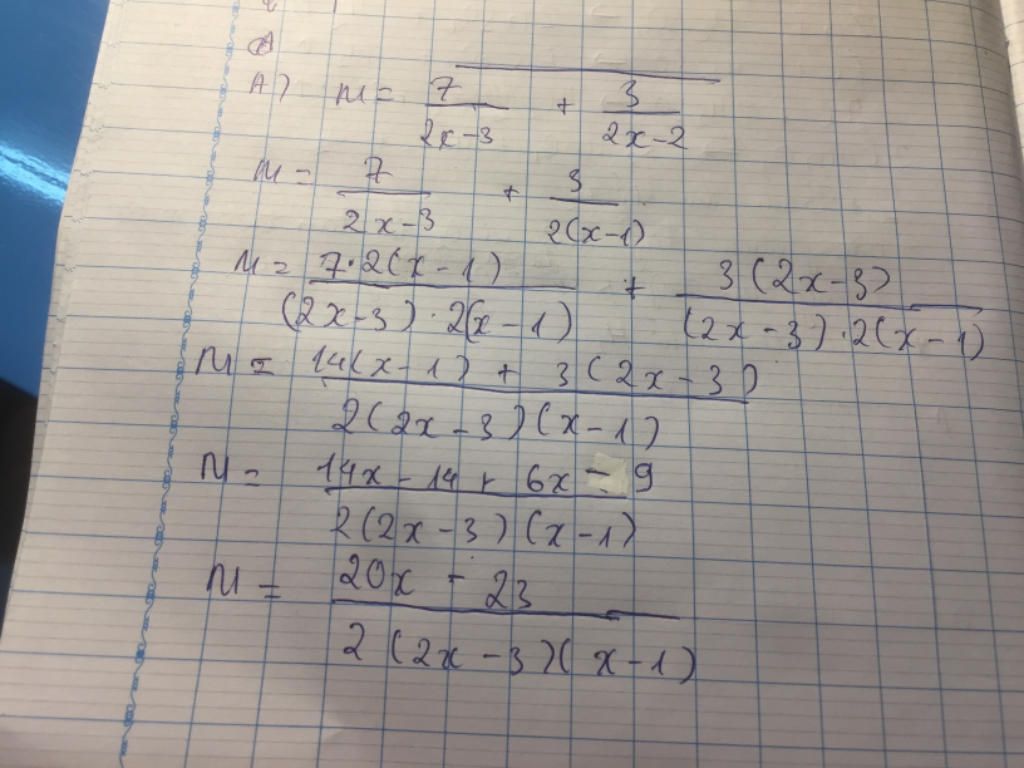 A) M = 7/(2x-3) + 3/(2x-2)
M = 7/(2x-3) + 3/(2(x-1))
M = 7·2(x-1)/((2x-3)·2(x-1)) + 3(2x-3)/((2x-3)·2(x-1))
M = (14(x-1) + 3(2x-3))/(2(2x-3)(x-1))
M = (14x-14+6x-9)/(2(2x-3)(x-1))
M = (20x-23)/(2(2x-3)(x-1))